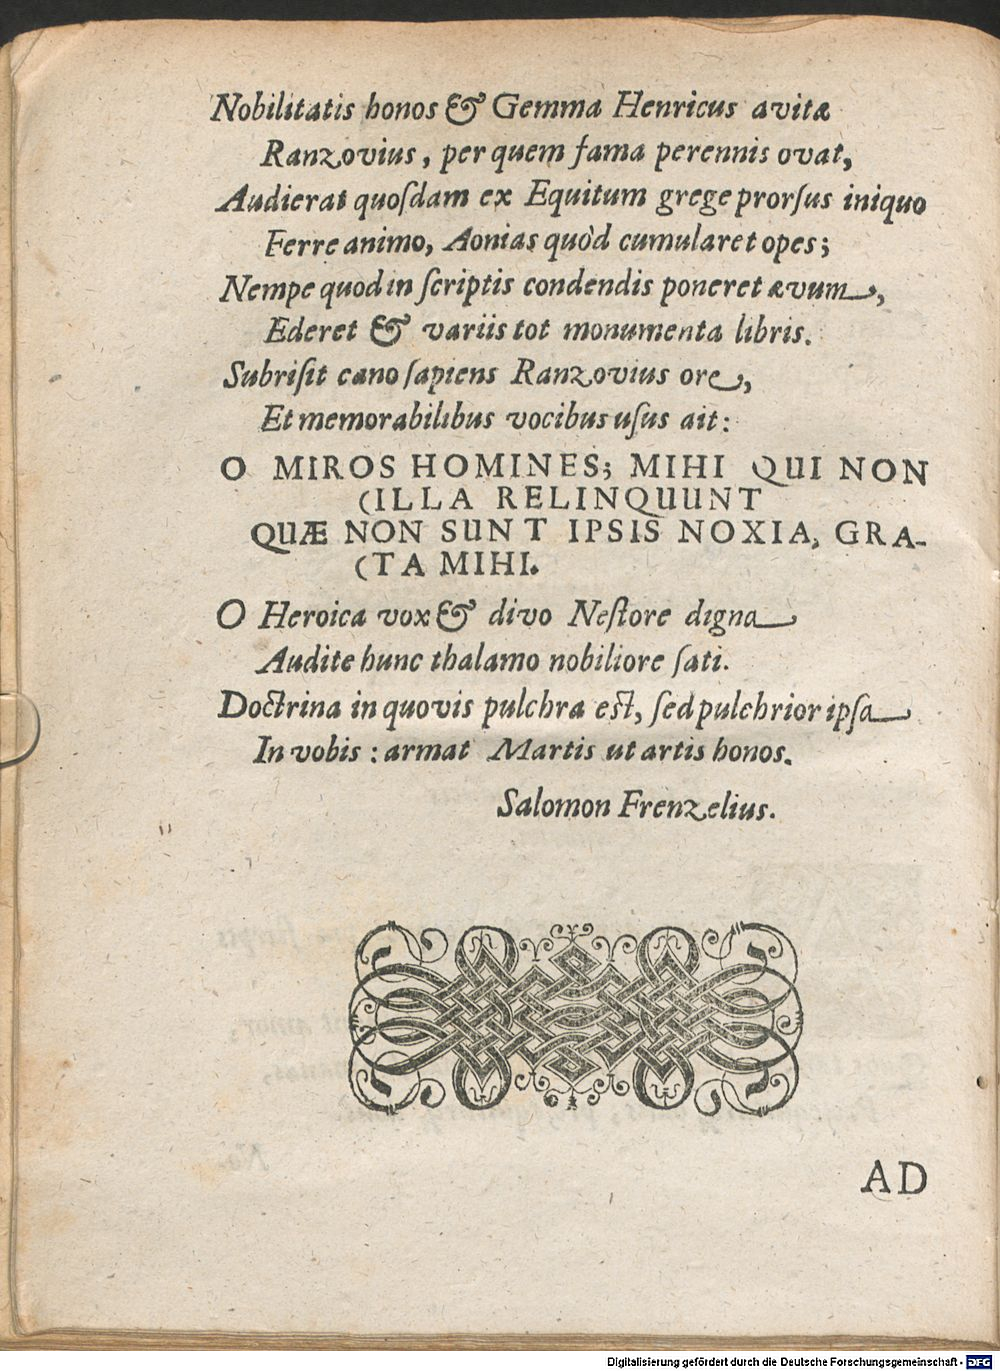 Nobilitatis honos & Gemma Henricus avitæ
Ranzovius, per quem fama perennis ovat,
Audierat quoſdam ex Equitum grege prorſus iniquo
Ferre animo, Aonias quòd cumularet opes;
Nempe quod in ſcriptis condendis poneret ævum,
Ederet & variis tot monumenta libris.
Subriſit cano ſapiens Ranzovius ore,
Et memorabilibus vocibus uſus ait:
O MIROS HOMINES; MIHI QUI NON
(ILLA RELINQUUNT
QUÆ NON SUNT IPSIS NOXIA, GRA-
(TA MIHI.
O Heroica vox & divo Neſtore digna
Audite hunc thalamo nobiliore ſati.
Doctrina in quovis pulchra eſt, ſed pulchrior ipſa
In vobis: armat Martis ut artis honos.
Salomon Frenzelius.
AD
Digitalisierung gefördert durch die Deutsche Forschungsgemeinschaft - DFG